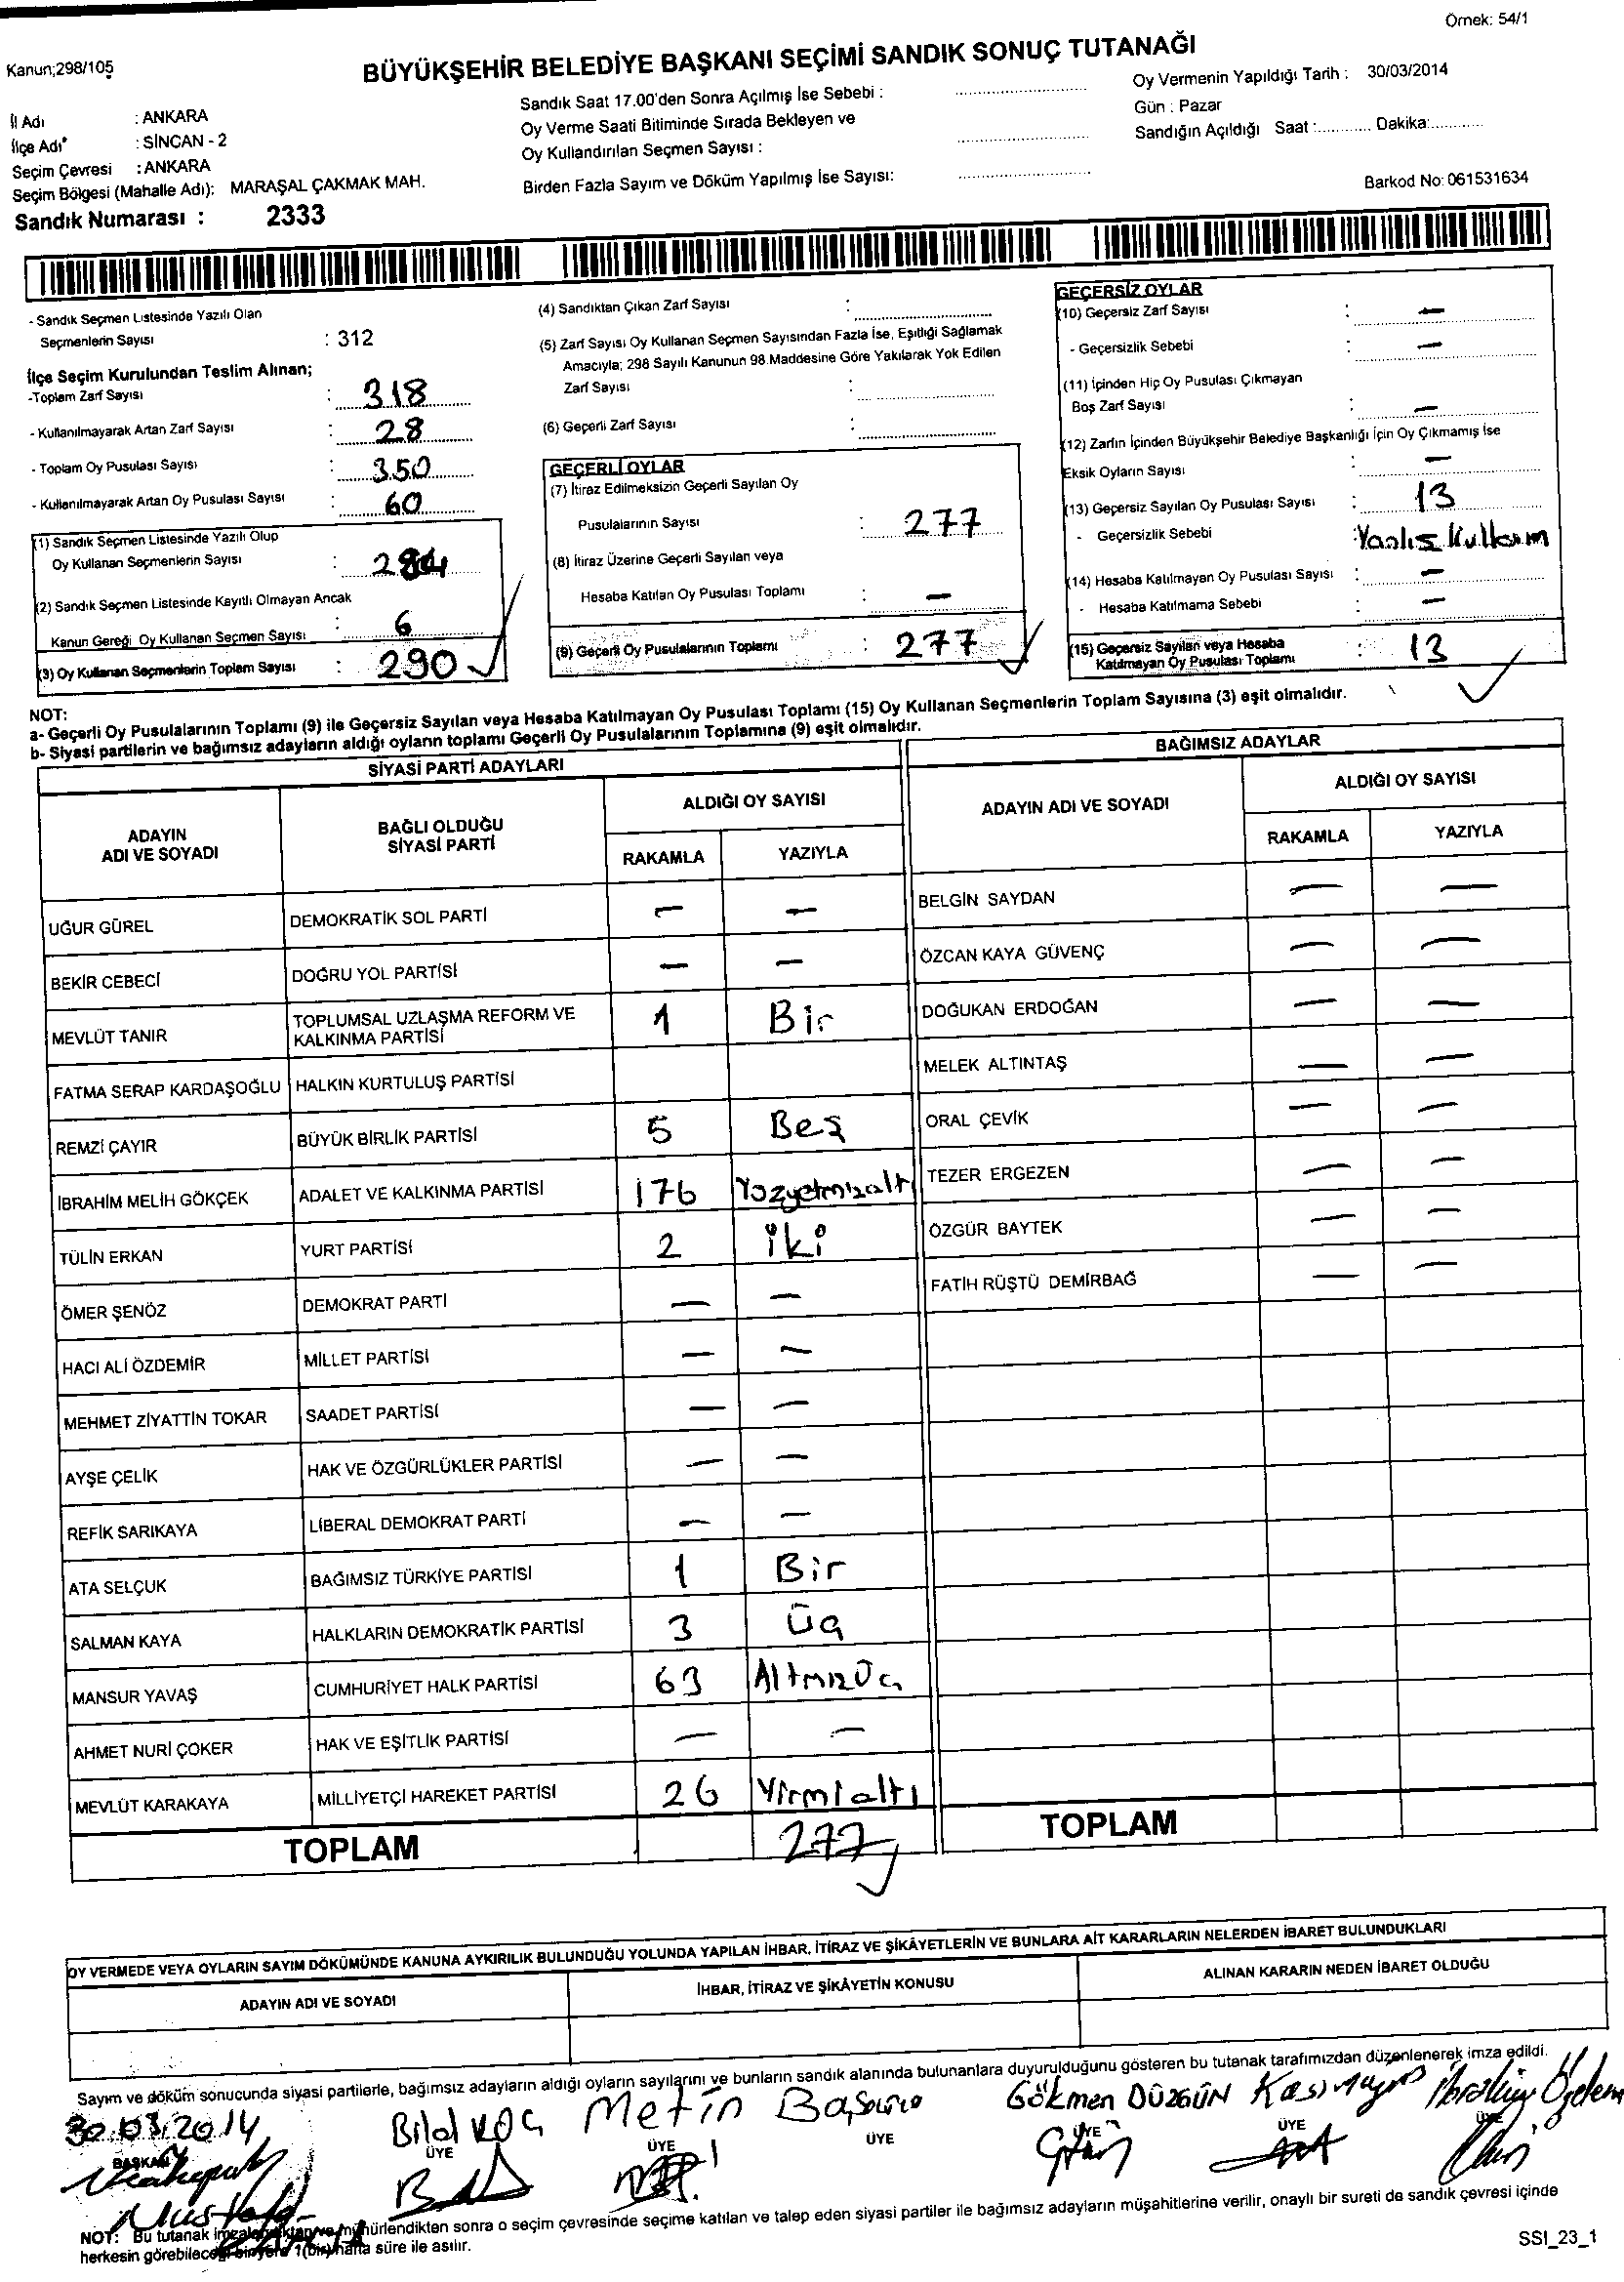 Örnek: 54/1
Kanun;298/105
BÜYÜKŞEHİR BELEDİYE BAŞKANI SEÇİMİ SANDIK SONUÇ TUTANAĞI
İl Adı : ANKARA
İlçe Adı : SİNCAN - 2
Seçim Çevresi : ANKARA
Seçim Bölgesi (Mahalle Adı): MARAŞAL ÇAKMAK MAH.
Sandık Numarası : 2333
Sandık Saat 17.00'den Sonra Açılmış İse Sebebi :
Oy Verme Saati Bitiminde Sırada Bekleyen ve
Oy Kullandırılan Seçmen Sayısı :
Birden Fazla Sayım ve Döküm Yapılmış İse Sayısı:
Oy Vermenin Yapıldığı Tarih : 30/03/2014
Gün : Pazar
Sandığın Açıldığı Saat :............ Dakika:............
Barkod No: 061531634
- Sandık Seçmen Listesinde Yazılı Olan
Seçmenlerin Sayısı : 312
İlçe Seçim Kurulundan Teslim Alınan;
-Toplam Zarf Sayısı : 318
- Kullanılmayarak Artan Zarf Sayısı : 28
- Toplam Oy Pusulası Sayısı : 350
- Kullanılmayarak Artan Oy Pusulası Sayısı : 60
(1) Sandık Seçmen Listesinde Yazılı Olup
Oy Kullanan Seçmenlerin Sayısı : 284
(2) Sandık Seçmen Listesinde Kayıtlı Olmayan Ancak
Kanun Gereği Oy Kullanan Seçmen Sayısı : 6
(3) Oy Kullanan Seçmenlerin Toplam Sayısı : 290
(4) Sandıktan Çıkan Zarf Sayısı :
(5) Zarf Sayısı Oy Kullanan Seçmen Sayısından Fazla İse, Eşitliği Sağlamak
Amacıyla; 298 Sayılı Kanunun 98.Maddesine Göre Yakılarak Yok Edilen
Zarf Sayısı :
(6) Geçerli Zarf Sayısı :
GEÇERLİ OYLAR
(7) İtiraz Edilmeksizin Geçerli Sayılan Oy
Pusulalarının Sayısı : 277
(8) İtiraz Üzerine Geçerli Sayılan veya
Hesaba Katılan Oy Pusulası Toplamı : —
(9) Geçerli Oy Pusulalarının Toplamı : 277
GEÇERSİZ OYLAR
(10) Geçersiz Zarf Sayısı : —
- Geçersizlik Sebebi : —
(11) İçinden Hiç Oy Pusulası Çıkmayan
Boş Zarf Sayısı : —
(12) Zarfın İçinden Büyükşehir Belediye Başkanlığı İçin Oy Çıkmamış İse
Eksik Oyların Sayısı : —
(13) Geçersiz Sayılan Oy Pusulası Sayısı : 13
- Geçersizlik Sebebi : Yanlış Kullanım
(14) Hesaba Katılmayan Oy Pusulası Sayısı : —
- Hesaba Katılmama Sebebi : —
(15) Geçersiz Sayılan veya Hesaba
Katılmayan Oy Pusulası Toplamı : 13
NOT:
a- Geçerli Oy Pusulalarının Toplamı (9) ile Geçersiz Sayılan veya Hesaba Katılmayan Oy Pusulası Toplamı (15) Oy Kullanan Seçmenlerin Toplam Sayısına (3) eşit olmalıdır.
b- Siyasi partilerin ve bağımsız adayların aldığı oyların toplamı Geçerli Oy Pusulalarının Toplamına (9) eşit olmalıdır.
SİYASİ PARTİ ADAYLARI
ADAYIN ADI VE SOYADI
BAĞLI OLDUĞU SİYASİ PARTİ
ALDIĞI OY SAYISI
RAKAMLA YAZIYLA
UĞUR GÜREL DEMOKRATİK SOL PARTİ — —
BEKİR CEBECİ DOĞRU YOL PARTİSİ — —
MEVLÜT TANIR TOPLUMSAL UZLAŞMA REFORM VE KALKINMA PARTİSİ 1 Bir
FATMA SERAP KARDAŞOĞLU HALKIN KURTULUŞ PARTİSİ
REMZİ ÇAYIR BÜYÜK BİRLİK PARTİSİ 5 Beş
İBRAHİM MELİH GÖKÇEK ADALET VE KALKINMA PARTİSİ 176 Yüzyetmişaltı
TÜLİN ERKAN YURT PARTİSİ 2 iki
ÖMER ŞENÖZ DEMOKRAT PARTİ — —
HACI ALİ ÖZDEMİR MİLLET PARTİSİ — —
MEHMET ZİYATTİN TOKAR SAADET PARTİSİ — —
AYŞE ÇELİK HAK VE ÖZGÜRLÜKLER PARTİSİ — —
REFİK SARIKAYA LİBERAL DEMOKRAT PARTİ — —
ATA SELÇUK BAĞIMSIZ TÜRKİYE PARTİSİ 1 Bir
SALMAN KAYA HALKLARIN DEMOKRATİK PARTİSİ 3 Üç
MANSUR YAVAŞ CUMHURİYET HALK PARTİSİ 63 Altmışüç
AHMET NURİ ÇOKER HAK VE EŞİTLİK PARTİSİ — —
MEVLÜT KARAKAYA MİLLİYETÇİ HAREKET PARTİSİ 26 Yirmialtı
TOPLAM 277
BAĞIMSIZ ADAYLAR
ADAYIN ADI VE SOYADI
ALDIĞI OY SAYISI
RAKAMLA YAZIYLA
BELGİN SAYDAN — —
ÖZCAN KAYA GÜVENÇ — —
DOĞUKAN ERDOĞAN — —
MELEK ALTINTAŞ — —
ORAL ÇEVİK — —
TEZER ERGEZEN — —
ÖZGÜR BAYTEK — —
FATİH RÜŞTÜ DEMİRBAĞ — —
TOPLAM
OY VERMEDE VEYA OYLARIN SAYIM DÖKÜMÜNDE KANUNA AYKIRILIK BULUNDUĞU YOLUNDA YAPILAN İHBAR, İTİRAZ VE ŞİKÂYETLERİN VE BUNLARA AİT KARARLARIN NELERDEN İBARET BULUNDUKLARI
ADAYIN ADI VE SOYADI İHBAR, İTİRAZ VE ŞİKÂYETİN KONUSU ALINAN KARARIN NEDEN İBARET OLDUĞU
Sayım ve döküm sonucunda siyasi partilerle, bağımsız adayların aldığı oyların sayılarını ve bunların sandık alanında bulunanlara duyurulduğunu gösteren bu tutanak tarafımızdan düzenlenerek imza edildi.
30.03.2014 Bilal KOÇ Metin Gökmen DÜZGÜN
BAŞKAN ÜYE ÜYE ÜYE ÜYE ÜYE ÜYE
Mustafa
NOT: Bu tutanak imzalandıktan ve mühürlendikten sonra o seçim çevresinde seçime katılan ve talep eden siyasi partiler ile bağımsız adayların müşahitlerine verilir, onaylı bir sureti de sandık çevresi içinde
herkesin görebileceği bir yere 1(bir) hafta süre ile asılır.
SSI_23_1